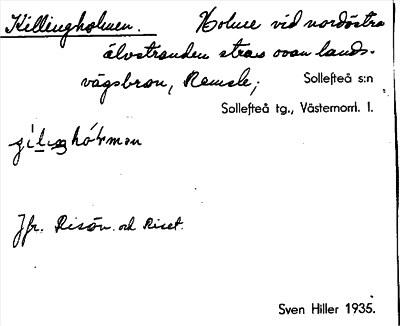 Killingholmen. Holme vid nordöstra
älvstranden strax ovan lands-
vägsbron, Remsle; Sollefteå s:n
Sollefteå tg., Västernorrl. l.
Jfr. Risön och Riset.
Sven Hiller 1935.